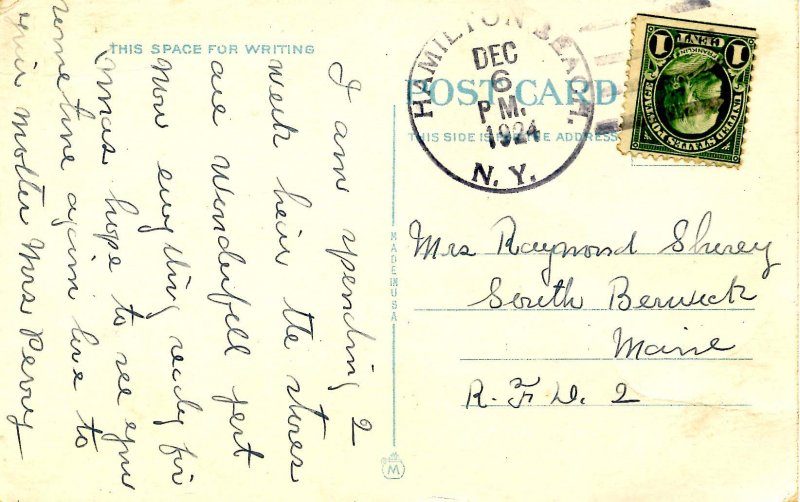 THIS SPACE FOR WRITING
I am spending 2
week heir the stores
are Wonderfell jest
Now evrything redy for
Xmas hope to see you
sometime again love to
your Mother Mrs Perry
POST CARD
THIS SIDE IS FOR THE ADDRESS
HAMILTON BEACH.
DEC
6
PM.
1924
N. Y.
1 CENT 1
FRANKLIN
UNITED STATES POSTAGE
MADE IN USA
M
Mrs Raymond Sherey
South Berwick
Maine
R. F. D. 2